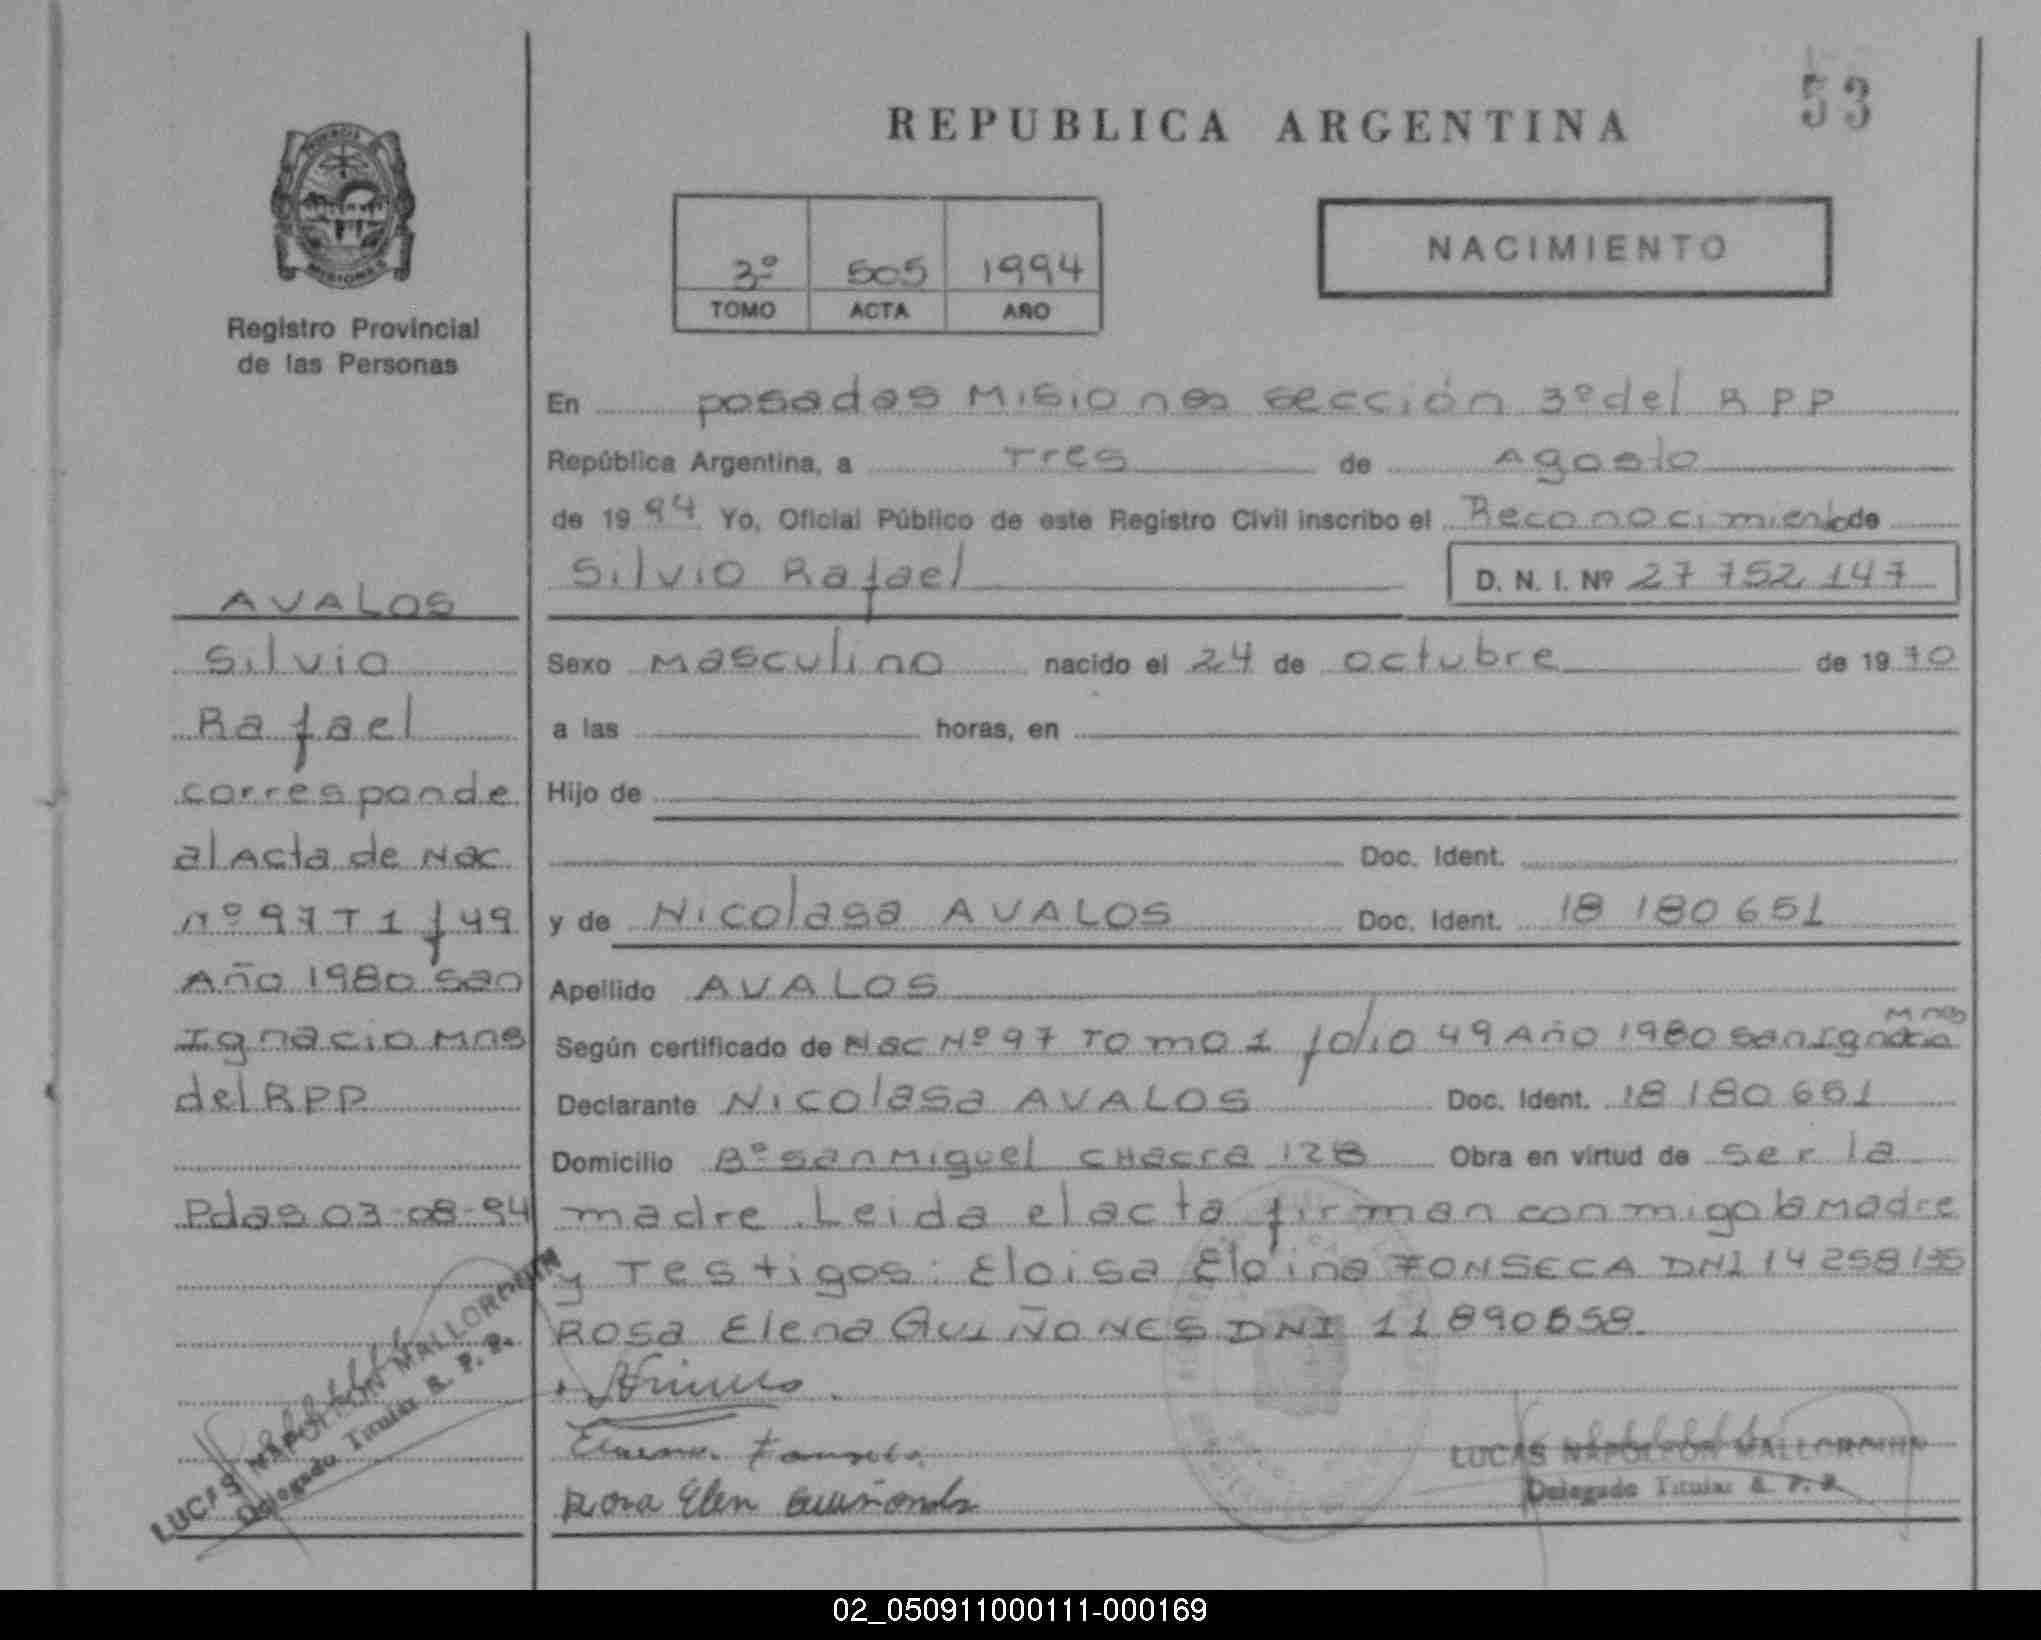 53
REPUBLICA ARGENTINA
MISIONES
Registro Provincial
de las Personas
3º 505 1994
TOMO ACTA AÑO
NACIMIENTO
AVALOS
Silvio
Rafael
corresponde
al Acta de Nac
nº 97 T 1 f 49
Año 1980 San
Ignacio Mnes
del RPP
Pdas 03-08-94
LUCAS NAPOLEON MALLORQUIN
Delegado Titular R. P. P.
En posadas Misiones sección 3º del R P P
República Argentina, a Tres de Agosto
de 1994 Yo, Oficial Público de este Registro Civil inscribo el Reconocimiento de
Silvio Rafael D. N. I. Nº 27 752 147
Sexo Masculino nacido el 24 de octubre de 1970
a las horas, en
Hijo de
Doc. Ident.
y de Nicolasa AVALOS Doc. Ident. 18 180 651
Apellido AVALOS
Según certificado de Nac Nº 97 Tomo 1 folio 49 Año 1980 San Ignacio Mnes
Declarante Nicolasa AVALOS Doc. Ident. 18 180 651
Domicilio Bº San Miguel CHacra 128 Obra en virtud de ser la
madre. Leida el acta firman conmigo la Madre
y Testigos: Eloisa Eloina FONSECA DNI 14 258 135
Rosa Elena QUIÑONES DNI 11 890658.
Rosa Elen
LUCAS NAPOLEON MALLORQUIN
Delegado Titular R. P. P.
02_050911000111-000169